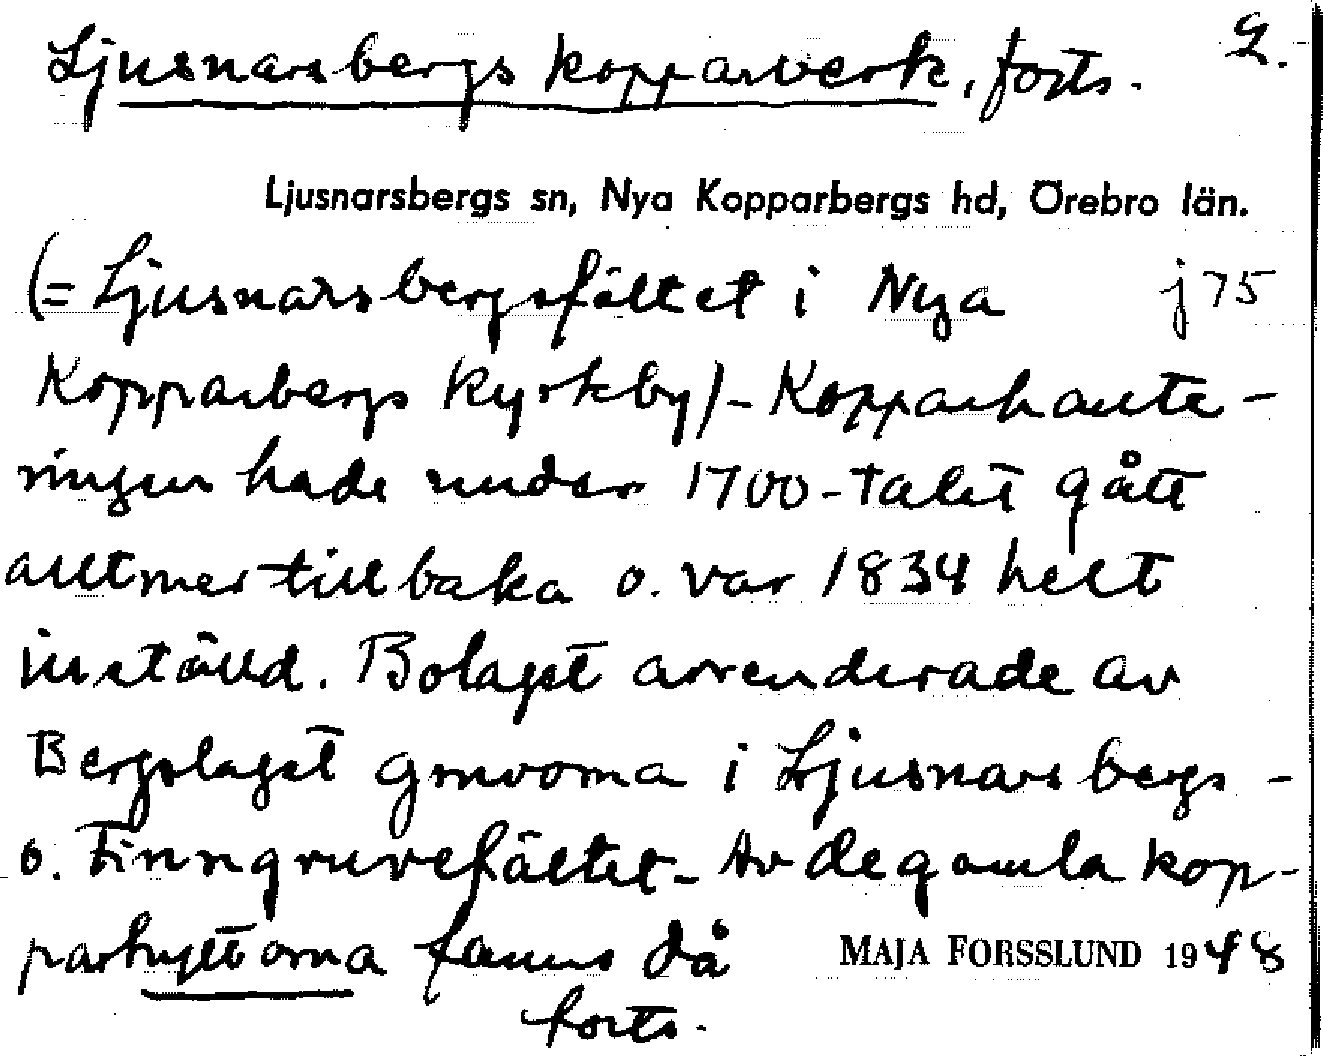 Ljusnarsbergs kopparverk, forts. 2.
Ljusnarsbergs sn, Nya Kopparbergs hd, Örebro län.
(= Ljusnarsbergsfältet i Nya j 75
Kopparbergs kyrkby) - Kopparhante-
ringen hade under 1700-talet gått
alltmer tillbaka o. var 1834 helt
inställd. Bolaget arrenderade av
Bergslaget gruvorna i Ljusnarsbergs -
o. Finngruvefältet - Av de gamla kop-
parhyttorna fanns då MAJA FORSSLUND 1948
forts.